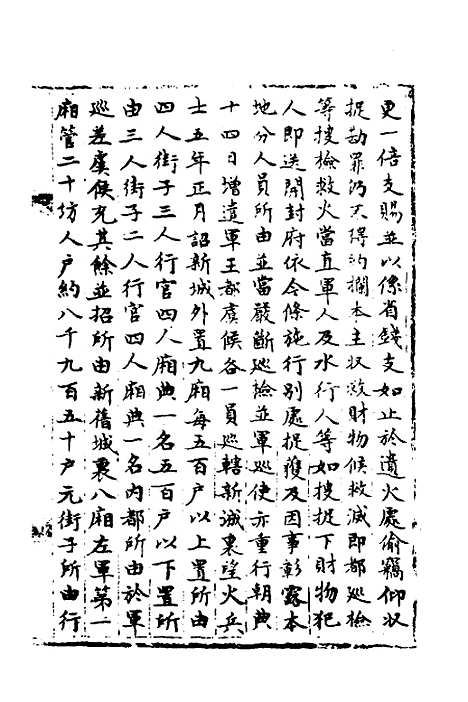 更一倍支賜並以係省錢支如止於遺火處偷竊仰收
捉勘罪仍不得約攔本主收救財物候救滅即都巡檢
等搜檢救火當直軍人及水行人等如搜捉下財物犯
人即送開封府依令條施行別處捉獲及因事彰露本
地分人員所由並當嚴斷巡檢並軍巡使亦重行朝典
十四日增遣軍王都虞候各一員巡轄新誠裏望火兵
士五年正月詔新城外置九廂每五百戶以上置所由
四人街子三人行官四人廂典一名五百戶以下置所
由三人街子二人行官四人廂典一名內都所由於軍
巡差虞候充其餘並招所由新舊城裏八廂左軍第一
廂管二十坊人戶約八千九百五十戶元街子所由行